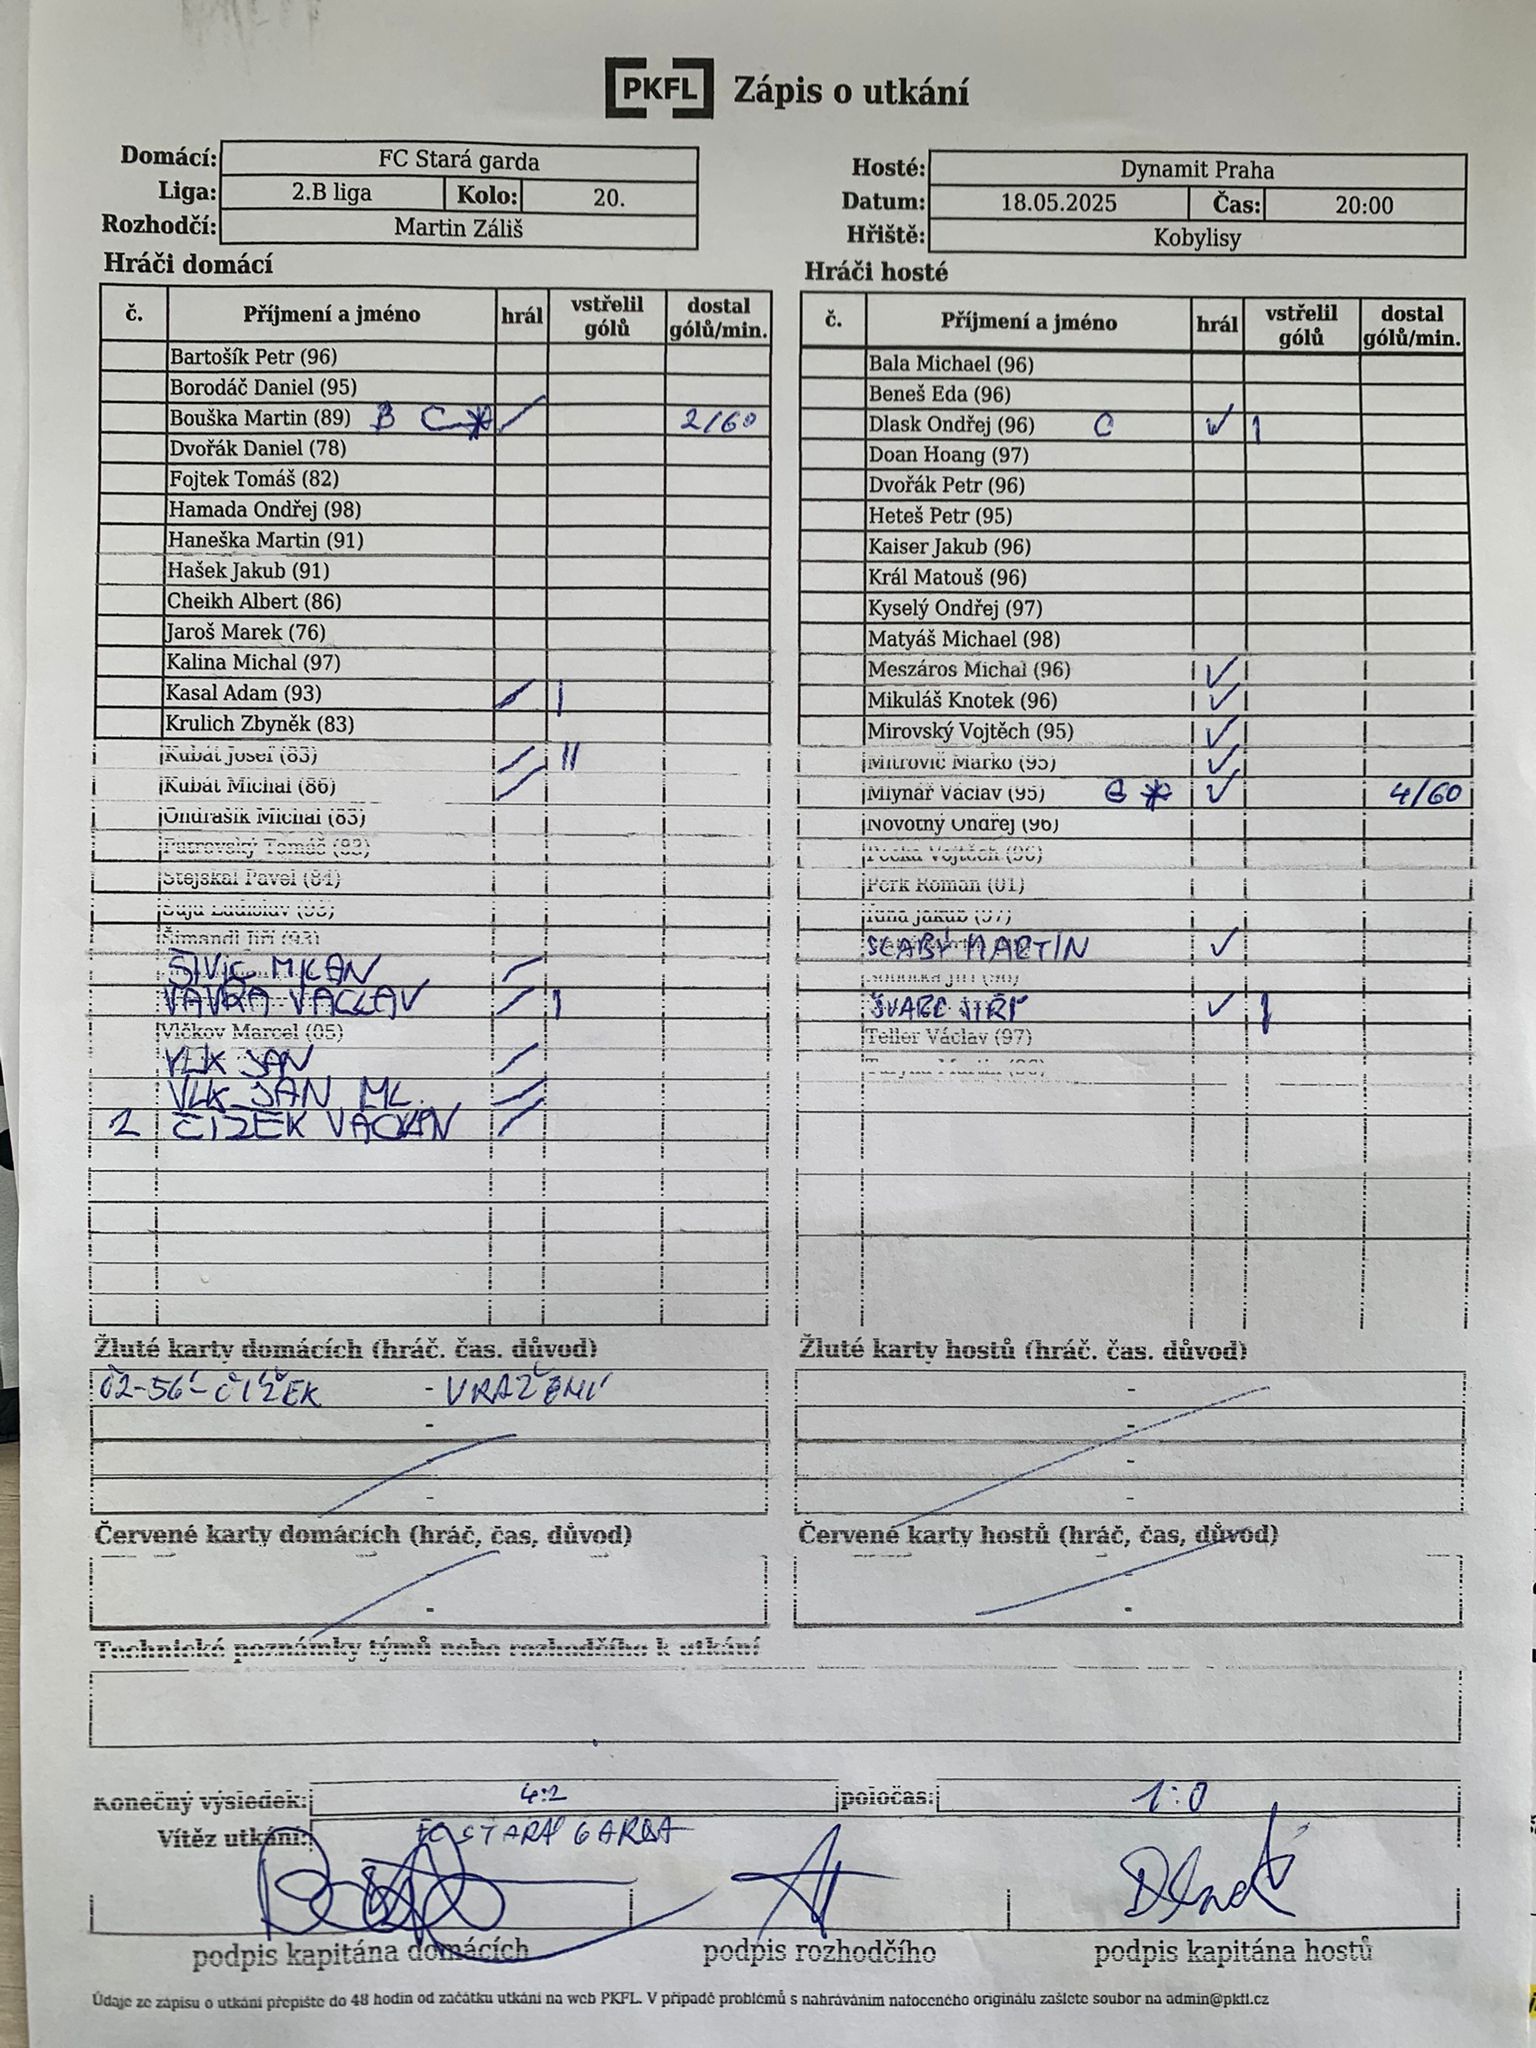 PKFL Zápis o utkání
Domácí: FC Stará garda
Liga: 2.B liga Kolo: 20.
Rozhodčí: Martin Záliš
Hosté: Dynamit Praha
Datum: 18.05.2025 Čas: 20:00
Hřiště: Kobylisy
Hráči domácí
č. Příjmení a jméno hrál vstřelil gólů dostal gólů/min.
Bartošík Petr (96)
Borodáč Daniel (95)
Bouška Martin (89) B C * / 2/60
Dvořák Daniel (78)
Fojtek Tomáš (82)
Hamada Ondřej (98)
Haneška Martin (91)
Hašek Jakub (91)
Cheikh Albert (86)
Jaroš Marek (76)
Kalina Michal (97)
Kasal Adam (93) / I
Krulich Zbyněk (83)
Kubát Josef (83) / II
Kubát Michal (86) /
Ondrašík Michal (83)
Stejskal Pavel (84)
Šimandl Jiří (93)
VAVRA VACLAV / I
Vlčkov Marcel (05)
VLK JAN /
VLK JAN ML. /
2 ČIZEK VACLAV /
Hráči hosté
č. Příjmení a jméno hrál vstřelil gólů dostal gólů/min.
Bala Michael (96)
Beneš Eda (96)
Dlask Ondřej (96) C ✓ I
Doan Hoang (97)
Dvořák Petr (96)
Heteš Petr (95)
Kaiser Jakub (96)
Král Matouš (96)
Kyselý Ondřej (97)
Matyáš Michael (98)
Meszáros Michal (96) ✓
Mikuláš Knotek (96) ✓
Mirovský Vojtěch (95) ✓
Mitrovič Marko (95) ✓
Mlynář Václav (95) * ✓ 4/60
Novotný Ondřej (96)
SLABÝ MARTIN ✓
ŠVARC JIŘÍ ✓ I
Teller Václav (97)
Žluté karty domácích (hráč, čas, důvod)
02-56'-ČÍŽEK - VRAŽENÍ
Žluté karty hostů (hráč, čas, důvod)
Červené karty domácích (hráč, čas, důvod)
Červené karty hostů (hráč, čas, důvod)
Technické poznámky týmů nebo rozhodčího k utkání
Konečný výsledek: 4:2 poločas: 1:0
Vítěz utkání: FC STARÁ GARDA
podpis kapitána domácích podpis rozhodčího podpis kapitána hostů
Údaje ze zápisu o utkání přepište do 48 hodin od začátku utkání na web PKFL. V případě problémů s nahráváním natoceného originálu zašlete soubor na admin@pkfl.cz